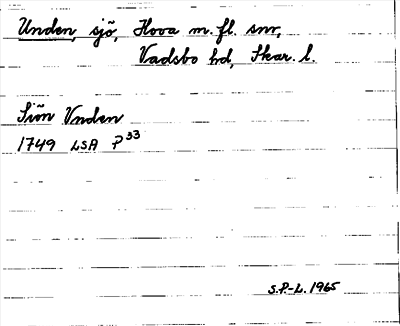 Unden, sjö, Hova m. fl. snr,
Vadsbo hd, Skar. l.
Siön Vnden
1749 LSA P33
S.P-L. 1965